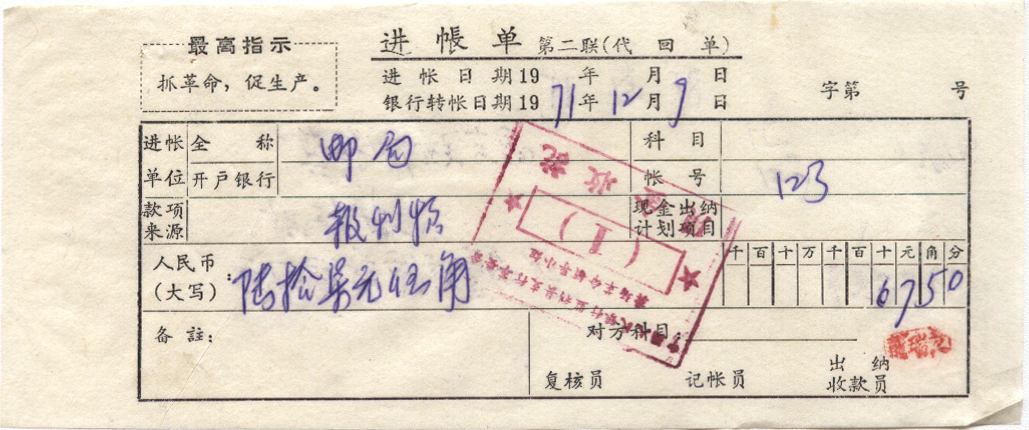 最高指示
抓革命，促生产。
进帐单 第二联(代回单)
进帐日期19 年 月 日
银行转帐日期1971年12月9日
字第 号
进帐单位 全称 邮局 科目
开户银行 帐号 123
款项来源 报刊 现金出纳计划项目
人民币(大写): 陆拾柒元伍角 千百十万千百十元角分 6750
备註: 对方科目
复核员 记帐员 出纳收款员
现金收讫
(1)